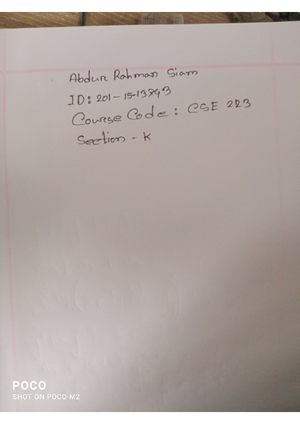 Abdur Rahman Siam
ID: 201-15-13743
Course Code: CSE 223
Section - K
POCO
SHOT ON POCO M2